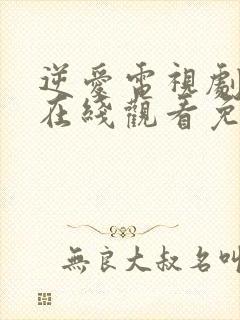 逆愛電視劇
在綫觀看免
無良大叔名叫